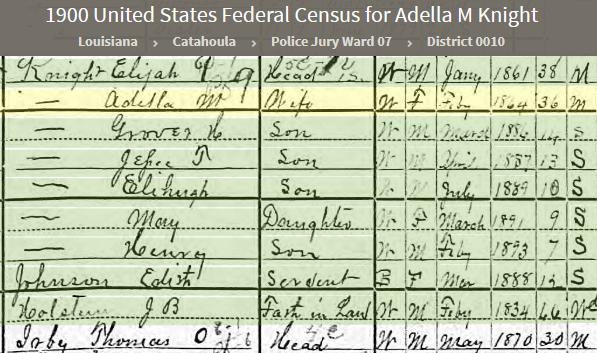 1900 United States Federal Census for Adella M Knight
Louisiana › Catahoula › Police Jury Ward 07 › District 0010
Knight Elijah Head W M Jany 1861 38 M
— Adella M Wife W F Feby 1864 36 M
— Grover Son W M March 1886 14 S
— Jesse T Son W M 1887 13 S
— Elihugh Son W M July 1889 10 S
— May Daughter W F March 1891 9 S
— Henry Son W M Feby 1893 7 S
Johnson Edith Servent B F Mar 1888 12 S
Holstein J B Fath in Law W M Feby 1834 66 Wd
Irby Thomas O Head W M May 1870 30 M